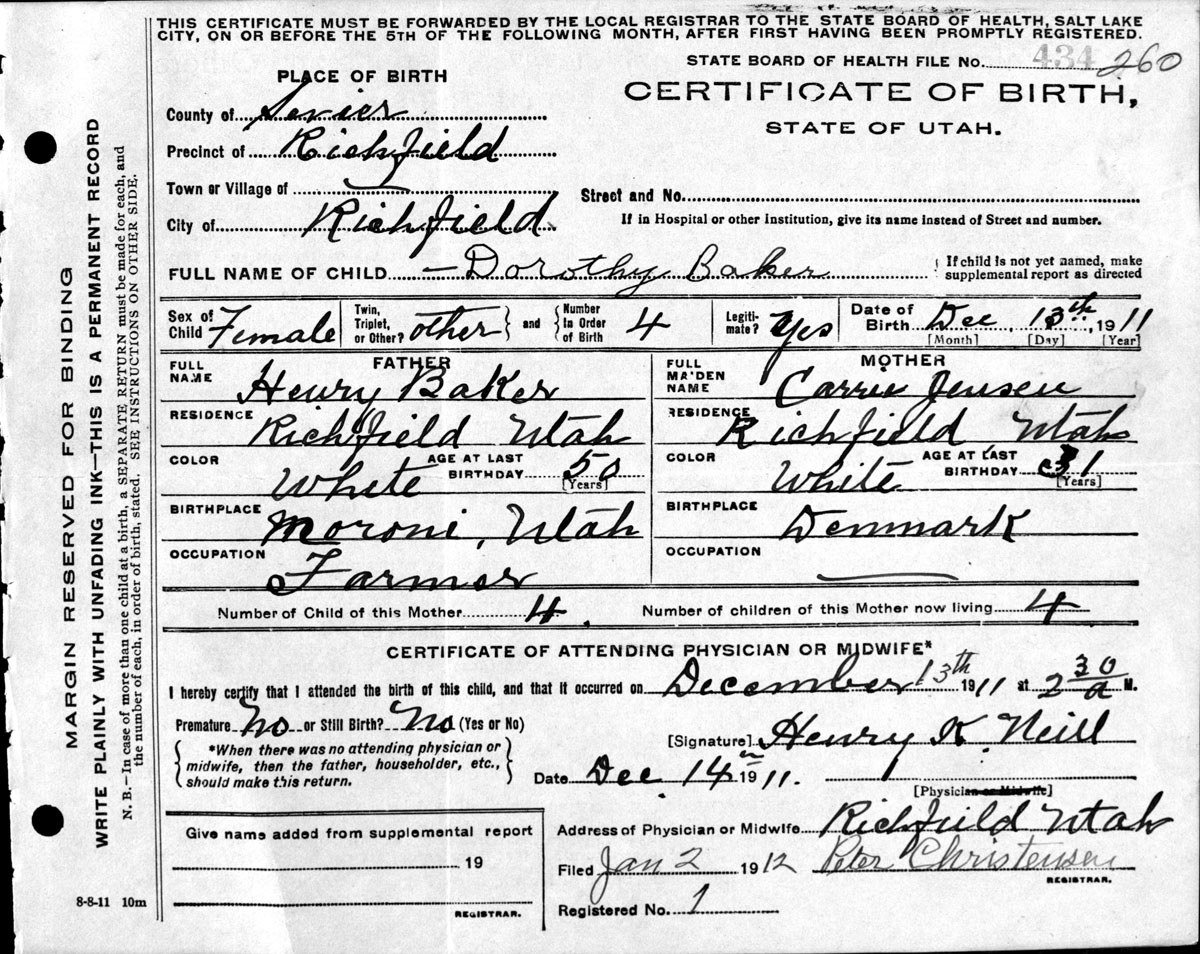 THIS CERTIFICATE MUST BE FORWARDED BY THE LOCAL REGISTRAR TO THE STATE BOARD OF HEALTH, SALT LAKE
CITY, ON OR BEFORE THE 5TH OF THE FOLLOWING MONTH, AFTER FIRST HAVING BEEN PROMPTLY REGISTERED.
STATE BOARD OF HEALTH FILE No. 434 260
PLACE OF BIRTH
CERTIFICATE OF BIRTH,
STATE OF UTAH.
County of Sevier
Precinct of Richfield
Town or Village of
Street and No.
City of Richfield
If in Hospital or other Institution, give its name instead of Street and number.
FULL NAME OF CHILD — Dorothy Baker
If child is not yet named, make
supplemental report as directed
Sex of Child Female
Twin, Triplet, or Other? other and Number In Order of Birth 4
Legiti-mate? Yes
Date of Birth Dec, 13th, 1911
[Month] [Day] [Year]
FATHER
FULL NAME Henry Baker
RESIDENCE Richfield Utah
COLOR White AGE AT LAST BIRTHDAY 50 [Years]
BIRTHPLACE Moroni, Utah
OCCUPATION Farmer
MOTHER
FULL MAIDEN NAME Carrie Jensen
RESIDENCE Richfield, Utah
COLOR White AGE AT LAST BIRTHDAY 31 [Years]
BIRTHPLACE Denmark
OCCUPATION
Number of Child of this Mother 4. Number of children of this Mother now living 4
CERTIFICATE OF ATTENDING PHYSICIAN OR MIDWIFE*
I hereby certify that I attended the birth of this child, and that it occurred on December 13th 1911 at 2 30 a M.
Premature No or Still Birth? No (Yes or No)
*When there was no attending physician or
midwife, then the father, householder, etc.,
should make this return.
[Signature] Henry K. Neill
Date Dec. 14 1911.
[Physician or Midwife]
Give name added from supplemental report
19
REGISTRAR.
Address of Physician or Midwife Richfield Utah
Filed Jan 2 1912 Peter Christensen
REGISTRAR.
Registered No. 1
8-8-11 10m
MARGIN RESERVED FOR BINDING
WRITE PLAINLY WITH UNFADING INK—THIS IS A PERMANENT RECORD
N. B.—In case of more than one child at a birth, a SEPARATE RETURN must be made for each, and
the number of each, in order of birth, stated. SEE INSTRUCTIONS ON OTHER SIDE.